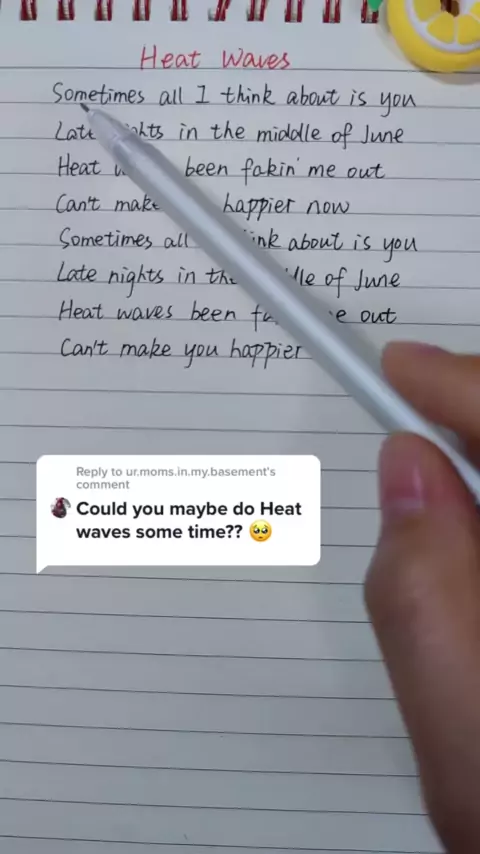 Heat Waves
Sometimes all I think about is you
Late in the middle of June
Heat been fakin' me out
Can't make happier now
Sometimes all about is you
Late nights in of June
Heat waves been out
Can't make you happier
Reply to ur.moms.in.my.basement's
comment
Could you maybe do Heat
waves some time?? 🥺